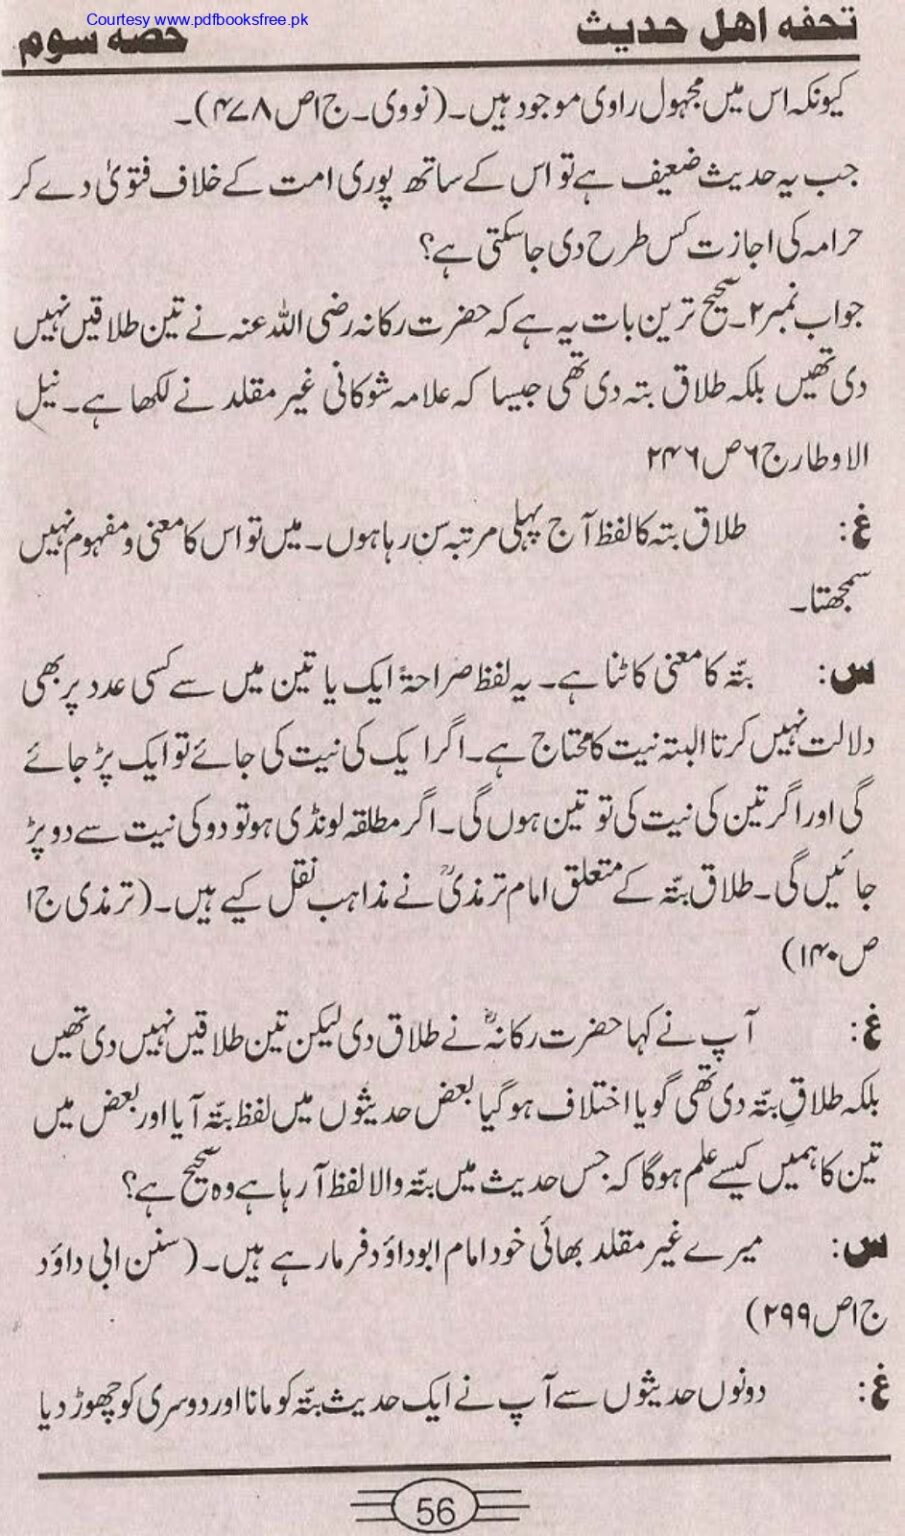 Courtesy www.pdfbooksfree.pk
تحفه اهل حدیث
حصه سوم
کیونکہ اس میں مجہول راوی موجود ہیں۔ (نووی۔ ج۱ص۴۷۸)۔
جب یہ حدیث ضعیف ہے تو اس کے ساتھ پوری امت کے خلاف فتویٰ دے کر
حرامہ کی اجازت کس طرح دی جاسکتی ہے؟
جواب نمبر۲۔ صحیح ترین بات یہ ہے کہ حضرت رکانہ رضی اللہ عنہ نے تین طلاقیں نہیں
دی تھیں بلکہ طلاق بتہ دی تھی جیسا کہ علامہ شوکانی غیر مقلد نے لکھا ہے۔ نیل
الاوطار ج۶ ص۲۴۶
غ: طلاق بتہ کا لفظ آج پہلی مرتبہ سن رہا ہوں۔ میں تو اس کا معنی و مفہوم نہیں
سمجھتا۔
س: بتّہ کا معنی کاٹنا ہے۔ یہ لفظ صراحۃً ایک یا تین میں سے کسی عدد پر بھی
دلالت نہیں کرتا البتہ نیت کا محتاج ہے۔ اگر ایک کی نیت کی جائے تو ایک پڑ جائے
گی اور اگر تین کی نیت کی تو تین ہوں گی۔ اگر مطلقہ لونڈی ہو تو دو کی نیت سے دو پڑ
جائیں گی۔ طلاق بتّہ کے متعلق امام ترمذیؒ نے مذاہب نقل کیے ہیں۔ (ترمذی ج۱
ص۱۴۰)
غ: آپ نے کہا حضرت رکانہؓ نے طلاق دی لیکن تین طلاقیں نہیں دی تھیں
بلکہ طلاقِ بتّہ دی تھی گویا اختلاف ہو گیا بعض حدیثوں میں لفظ بتّہ آیا اور بعض میں
تین کا ہمیں کیسے علم ہوگا کہ جس حدیث میں بتّہ والا لفظ آرہا ہے وہ صحیح ہے؟
س: میرے غیر مقلد بھائی خود امام ابوداؤد فرمارہے ہیں۔ (سنن ابی داؤد
ج۱ص۲۹۹)
غ: دونوں حدیثوں سے آپ نے ایک حدیث بتّہ کو مانا اور دوسری کو چھوڑ دیا
56